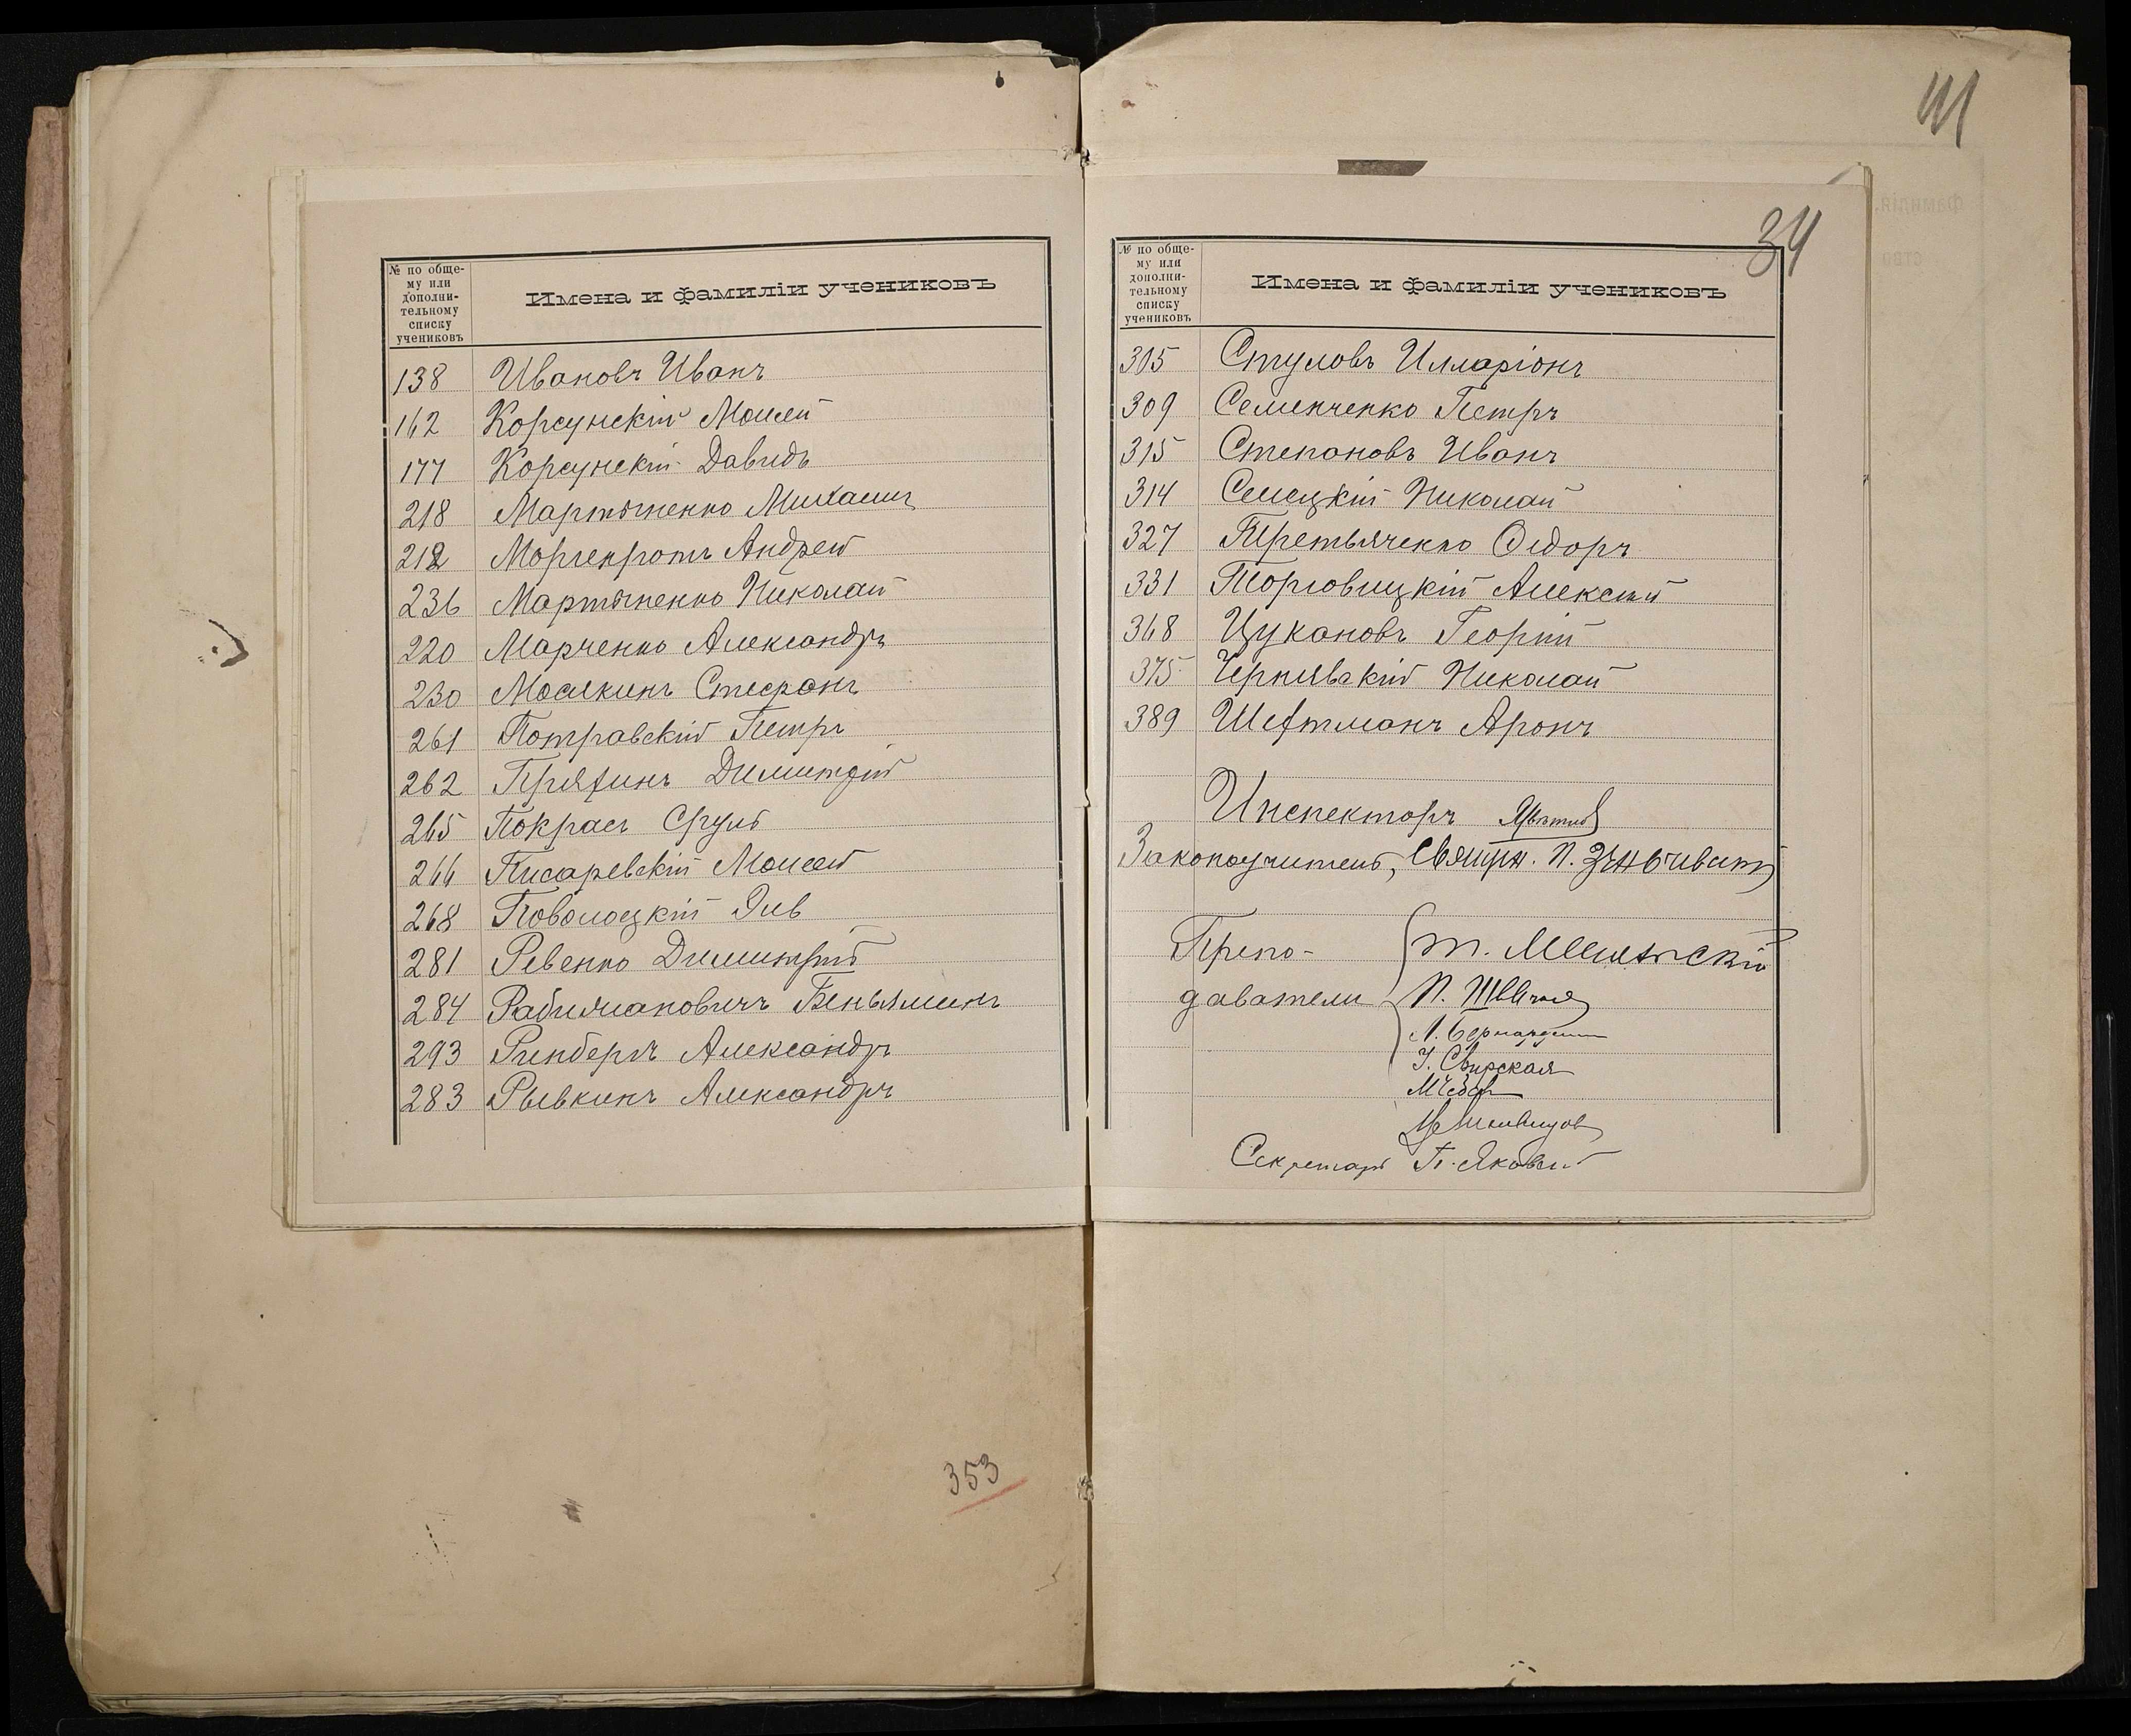 № по обще-
му или
дополни-
тельному
списку
учениковъ
Имена и фамиліи учениковъ
138 Ивановъ Иванъ
162 Корсунскій Моисей
177 Корсунскій Давидъ
218 Мартыненко Михаилъ
212 Моргенротъ Андрей
236 Мартыненко Николай
220 Марченко Александръ
230 Мосякинъ Стефанъ
261 Потравскій Петръ
262 Пряхинъ Димитрій
265 Покрасъ Сруль
266 Писаревскій Моисей
268 Поволоцкій Эль
281 Ревенко Димитрій
284 Рабиняновичъ Беньяминъ
293 Ринбергъ Александръ
283 Рывкинъ Александръ
353
41
34
№ по обще-
му или
дополни-
тельному
списку
учениковъ
Имена и фамиліи учениковъ
305 Стуловъ Илларіонъ
309 Семенченко Петръ
315 Степановъ Иванъ
314 Селецкій Николай
327 Третьяченко Ѳедоръ
331 Торговицкій Алексѣй
368 Цукановъ Георгій
375 Чернявскій Николай
389 Шехтманъ Аронъ
Инспекторъ
Законоучитель, Священ. П.
Препо-
даватели
П.
І. Свирская
Секретарь П.